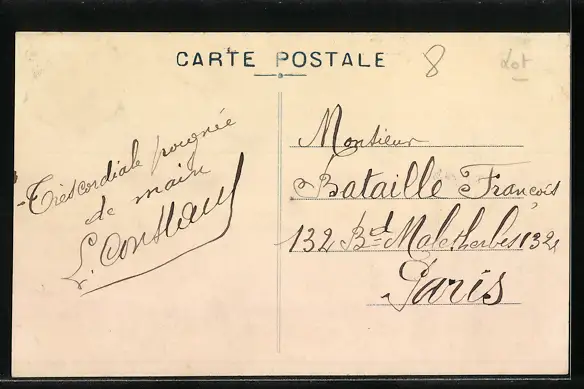 CARTE POSTALE
8
Lot
Très cordiale poignée
de main
L. Constant
Monsieur
Bataille François
132 Bd Malesherbes 132
Paris